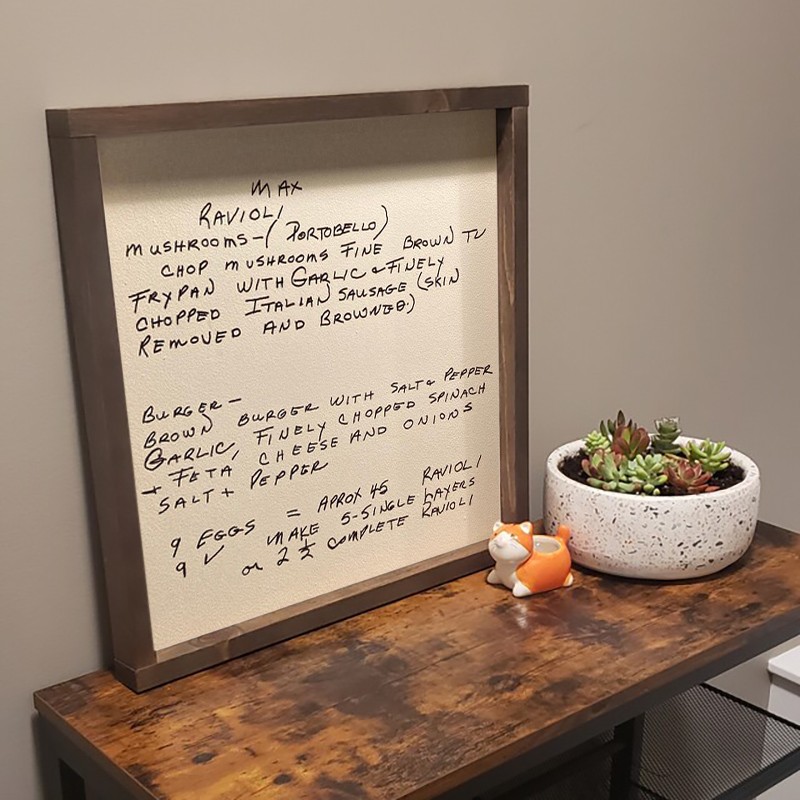 MAX
RAVIOLI
MUSHROOMS-(PORTOBELLO)
CHOP MUSHROOMS FINE BROWN IN
FRYPAN WITH GARLIC & FINELY
CHOPPED ITALIAN SAUSAGE (SKIN
REMOVED AND BROWNED.)
BURGER-
BROWN BURGER WITH SALT & PEPPER
GARLIC, FINELY CHOPPED SPINACH
+ FETA CHEESE AND ONIONS
SALT + PEPPER
9 EGGS = APROX 45 RAVIOLI
9 ✓ MAKE 5-SINGLE LAYERS
or 2 ½ COMPLETE RAVIOLI